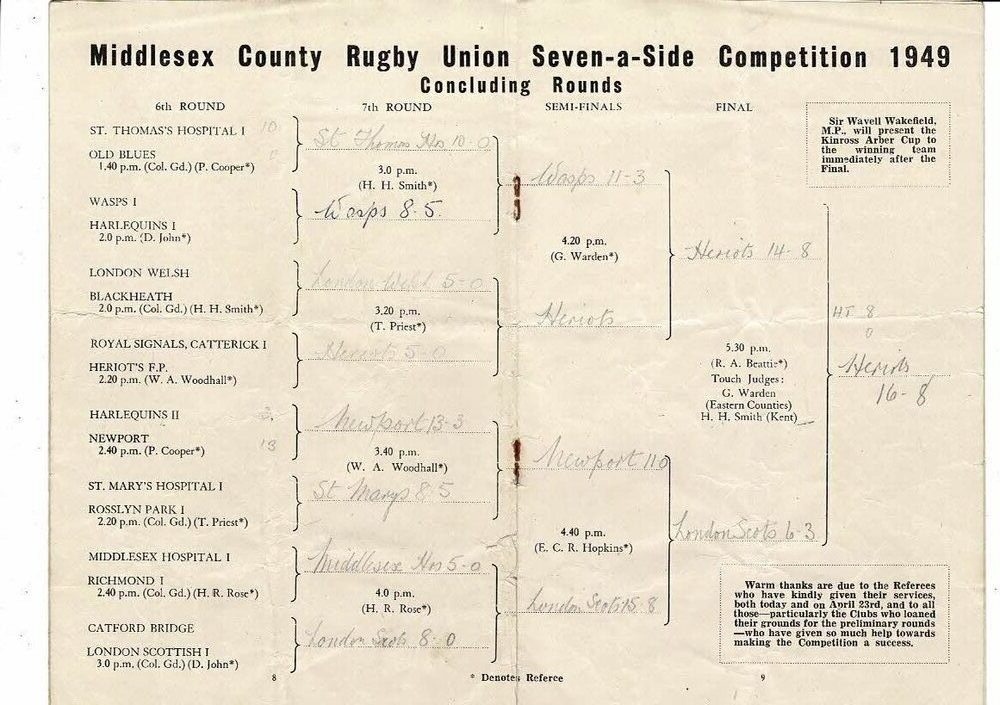 Middlesex County Rugby Union Seven-a-Side Competition 1949
Concluding Rounds
6th ROUND
ST. THOMAS'S HOSPITAL I 10
OLD BLUES 0
1.40 p.m. (Col. Gd.) (P. Cooper*)
WASPS I
HARLEQUINS I
2.0 p.m. (D. John*)
LONDON WELSH
BLACKHEATH
2.0 p.m. (Col. Gd.) (H. H. Smith*)
ROYAL SIGNALS, CATTERICK I
HERIOT'S F.P.
2.20 p.m. (W. A. Woodhall*)
HARLEQUINS II 3
NEWPORT 13
2.40 p.m. (P. Cooper*)
ST. MARY'S HOSPITAL I
ROSSLYN PARK I
2.20 p.m. (Col. Gd.) (T. Priest*)
MIDDLESEX HOSPITAL I
RICHMOND I
2.40 p.m. (Col. Gd.) (H. R. Rose*)
CATFORD BRIDGE
LONDON SCOTTISH I
3.0 p.m. (Col. Gd.) (D. John*)
8
7th ROUND
St Thomas Hos 10-0
3.0 p.m.
(H. H. Smith*)
Wasps 8-5.
London Welsh 5-0
3.20 p.m.
(T. Priest*)
Heriots 5-0
Newport 13-3
3.40 p.m.
(W. A. Woodhall*)
St Marys 8-5
Middlesex Hos 5-0
4.0 p.m.
(H. R. Rose*)
London Scots 8-0
* Denotes Referee
SEMI-FINALS
Wasps 11-3
4.20 p.m.
(G. Warden*)
Heriots
Newport 11 0
4.40 p.m.
(E. C. R. Hopkins*)
London Scots 15-8
FINAL
Heriots 14-8
5.30 p.m.
(R. A. Beattie*)
Touch Judges:
G. Warden
(Eastern Counties)
H. H. Smith (Kent)
London Scots 6-3
HT 8
0
Heriots
16-8
Sir Wavell Wakefield,
M.P., will present the
Kinross Arber Cup to
the winning team
immediately after the
Final.
Warm thanks are due to the Referees
who have kindly given their services,
both today and on April 23rd, and to all
those—particularly the Clubs who loaned
their grounds for the preliminary rounds
—who have given so much help towards
making the Competition a success.
9